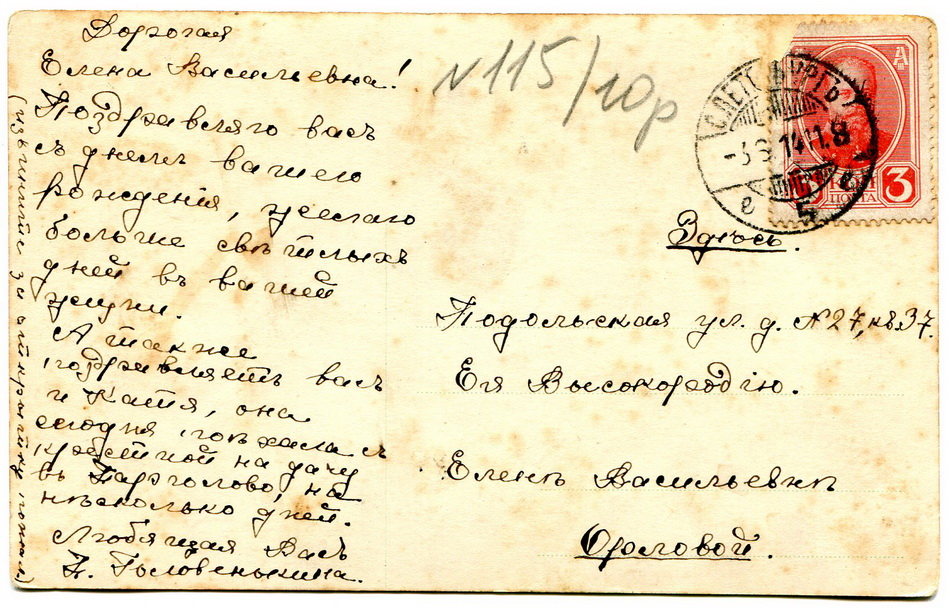 Дорогая
Елена Васильевна!
Поздравляю васъ
съ днемъ вашего
рожденія, желаю
больше свѣтлыхъ
дней въ вашей
жизни.
А также
поздравляетъ васъ
и Катя, она
сегодня поѣхала съ
крестной на дачу
въ Парголово, на
нѣсколько дней.
Любящая Васъ
Н. Головенькина.
(извините за открытку
N 115/10р
-3.6.14.11.8
5
КОП
ПОЧТА
3
Здѣсь.
Подольская ул. д. № 27, кв. 37.
Ея Высокородію.
Еленѣ Васильевнѣ
Орловой.